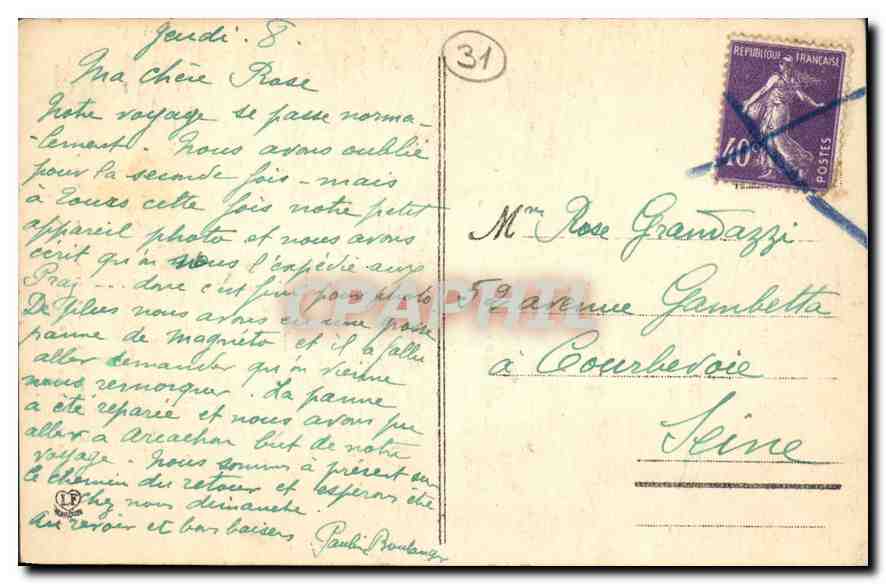 Jeudi. 8.
Ma chère Rose
Notre voyage se passe norma-
-lement. Nous avons oublié
pour la seconde fois - mais
à Tours cette fois notre petit
appareil photo et nous avons
écrit qu'on nous l'expédie aux
Praj... donc c'est fini pour photo
De plus nous avons eu une grosse
panne de magnéto et il a fallu
aller demander qu'on vienne
nous remorquer. La panne
a été réparée et nous avons pu
aller a Arcachon but de notre
voyage. Nous sommes à présent sur
le chemin du retour et espérons être
chez nous dimanche.
Au revoir et bons baisers
Boulanger
31
REPUBLIQUE FRANÇAISE
40c
POSTES
Mme Rose Grandazzi
59 avenue Gambetta
à Courbevoie
Seine
CPAPHIL